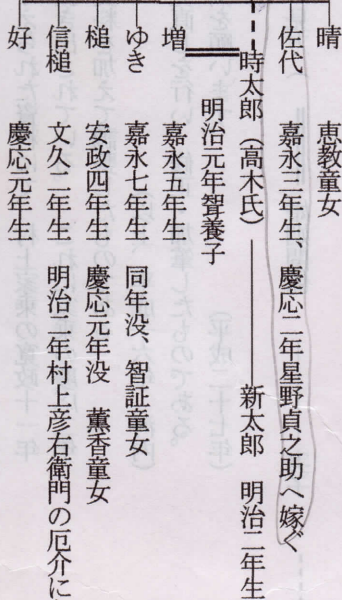 晴　恵教童女
佐代　嘉永三年生、慶応二年星野貞之助へ嫁ぐ
時太郎（高木氏）　新太郎　明治二年生
明治元年聟養子
増　嘉永五年生
ゆき　嘉永七年生　同年没、智証童女
槌　安政四年生　慶応元年没　薫香童女
信槌　文久二年生　明治二年村上彦右衛門の厄介に
好　慶応元年生